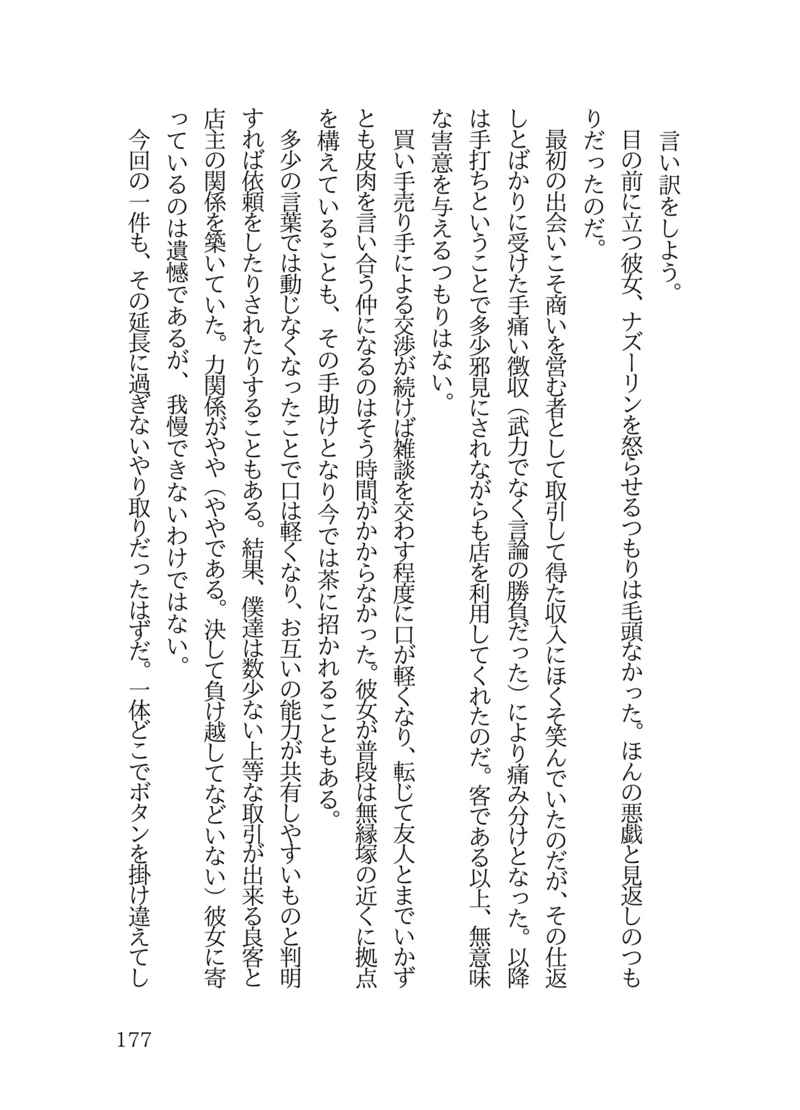 言い訳をしよう。
目の前に立つ彼女、ナズーリンを怒らせるつもりは毛頭なかった。ほんの悪戯と見返しのつも
りだったのだ。
最初の出会いこそ商いを営む者として取引して得た収入にほくそ笑んでいたのだが、その仕返
しとばかりに受けた手痛い徴収（武力でなく言論の勝負だった）により痛み分けとなった。以降
は手打ちということで多少邪見にされながらも店を利用してくれたのだ。客である以上、無意味
な害意を与えるつもりはない。
買い手売り手による交渉が続けば雑談を交わす程度に口が軽くなり、転じて友人とまでいかず
とも皮肉を言い合う仲になるのはそう時間がかからなかった。彼女が普段は無縁塚の近くに拠点
を構えていることも、その手助けとなり今では茶に招かれることもある。
多少の言葉では動じなくなったことで口は軽くなり、お互いの能力が共有しやすいものと判明
すれば依頼をしたりされたりすることもある。結果、僕達は数少ない上等な取引が出来る良客と
店主の関係を築いていた。力関係がやや（ややである。決して負け越してなどいない）彼女に寄
っているのは遺憾であるが、我慢できないわけではない。
今回の一件も、その延長に過ぎないやり取りだったはずだ。一体どこでボタンを掛け違えてし
177